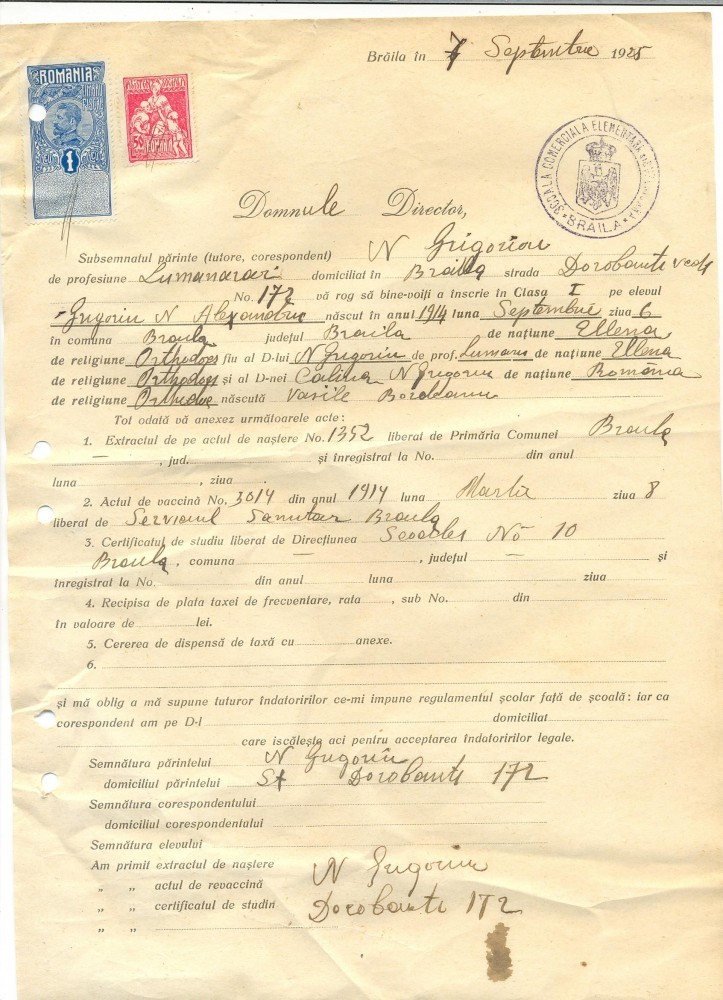 Brăila în 7 Septembrie 1925
ROMANIA
TIMBRU FISCAL
1
50
ROMANIA
SCOALA COMERCIALA ELEMENTARA
BRAILA
Domnule Director,
Subsemnatul părinte (tutore, corespondent) N Grigoriu
de profesiune Lumanarar domiciliat în Braila strada Dorobanti vechi
No. 172 vă rog să bine-voiți a înscrie în Clasa I pe elevul
Grigoriu N Alexandru născut în anul 1914 luna Septembrie ziua 6
în comuna Braila județul Braila de națiune Ellena
de religiune Orthodox fiu al D-lui N Grigoriu de prof. Lumanar de națiune Ellena
de religiune Orthodox și al D-nei Calina N Grigoriu de națiune Romăna
de religiune Orthodox născută Vasile
Tot odată vă anexez următoarele acte:
1. Extractul de pe actul de naștere No. 1352 liberat de Primăria Comunei Braila
— , jud. și înregistrat la No. din anul
luna , ziua
2. Actul de vaccină No. 3014 din anul 1914 luna Martie ziua 8
liberat de Serviciul Sanitar Braila
3. Certificatul de studiu liberat de Direcțiunea Scoalei No 10
Braila, comuna — , județul — și
înregistrat la No. din anul luna ziua
4. Recipisa de plata taxei de frecventare, rata , sub No. din
în valoare de lei.
5. Cererea de dispensă de taxă cu anexe.
6.
și mă oblig a mă supune tuturor îndatoririlor ce-mi impune regulamentul școlar față de școală: iar ca
corespondent am pe D-l domiciliat
care iscălește aci pentru acceptarea îndatoririlor legale.
Semnătura părintelui N Grigoriu
domiciliul părintelui St Dorobanti 172
Semnătura corespondentului
domiciliul corespondentului
Semnătura elevului
Am primit extractul de naștere N Grigoriu
„ „ actul de revaccină
„ „ certificatul de studin Dorobanti 172
„ „